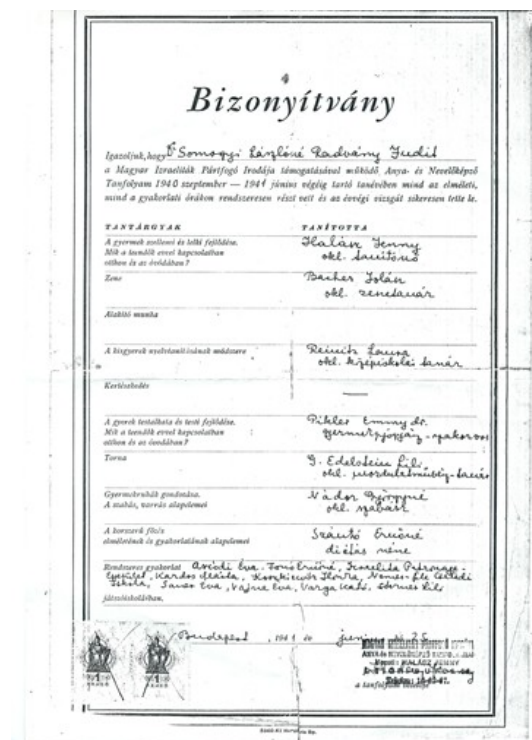 Bizonyítvány
Igazoljuk, hogy Dr Somogyi Lászlóné Radvány Judit
a Magyar Izraeliták Pártfogó Irodája támogatásával működő Anya- és Nevelőképző
Tanfolyam 1940 szeptember — 1941 június végéig tartó tanévében mind az elméleti,
mind a gyakorlati órákon rendszeresen részt vett és az évvégi vizsgát sikeresen tette le.
TANTÁRGYAK TANÍTOTTA
A gyermek szellemi és lelki fejlődése.
Mik a teendők evvel kapcsolatban
otthon és az óvodában?
Halász Jenny
okl. tanítónő
Zene
Bacher Jolán
okl. zenetanár
Alakító munka
A kisgyerek nyelvtanításának módszere
Reinitz Laura
okl. középiskolai tanár
Kertészkedés —
A gyerek testalkata és testi fejlődése.
Mik a teendők evvel kapcsolatban
otthon és az óvodában?
Pikler Emmy dr.
Torna
G. Edelstein Lili
okl. mozdulatművész-tanár
Gyermekruhák gondozása.
A szabás, varrás alapelemei
Nádor Györgyné
okl. szabász
A korszerű főzés
elméletének és gyakorlatának alapelemei
Szántó Ernőné
diétás néne
Rendszeres gyakorlat Avédi Éva, Fonó Ernőné, Izraelita Patronage-
Egyesület, Kardos Márta, Ilonka, Nemes-féle Családi
Iskola, Éva, Vajna Éva, Varga Kató, Lili
játszóiskolában.
Budapest, 1941 év junius hó 25
MAGYAR IZRAELITÁK PÁRTFOGÓ IRODÁJA
ANYA és NEVELŐKÉPZŐ
HALÁSZ JENNY
a tanfolyam vezetője
1 1